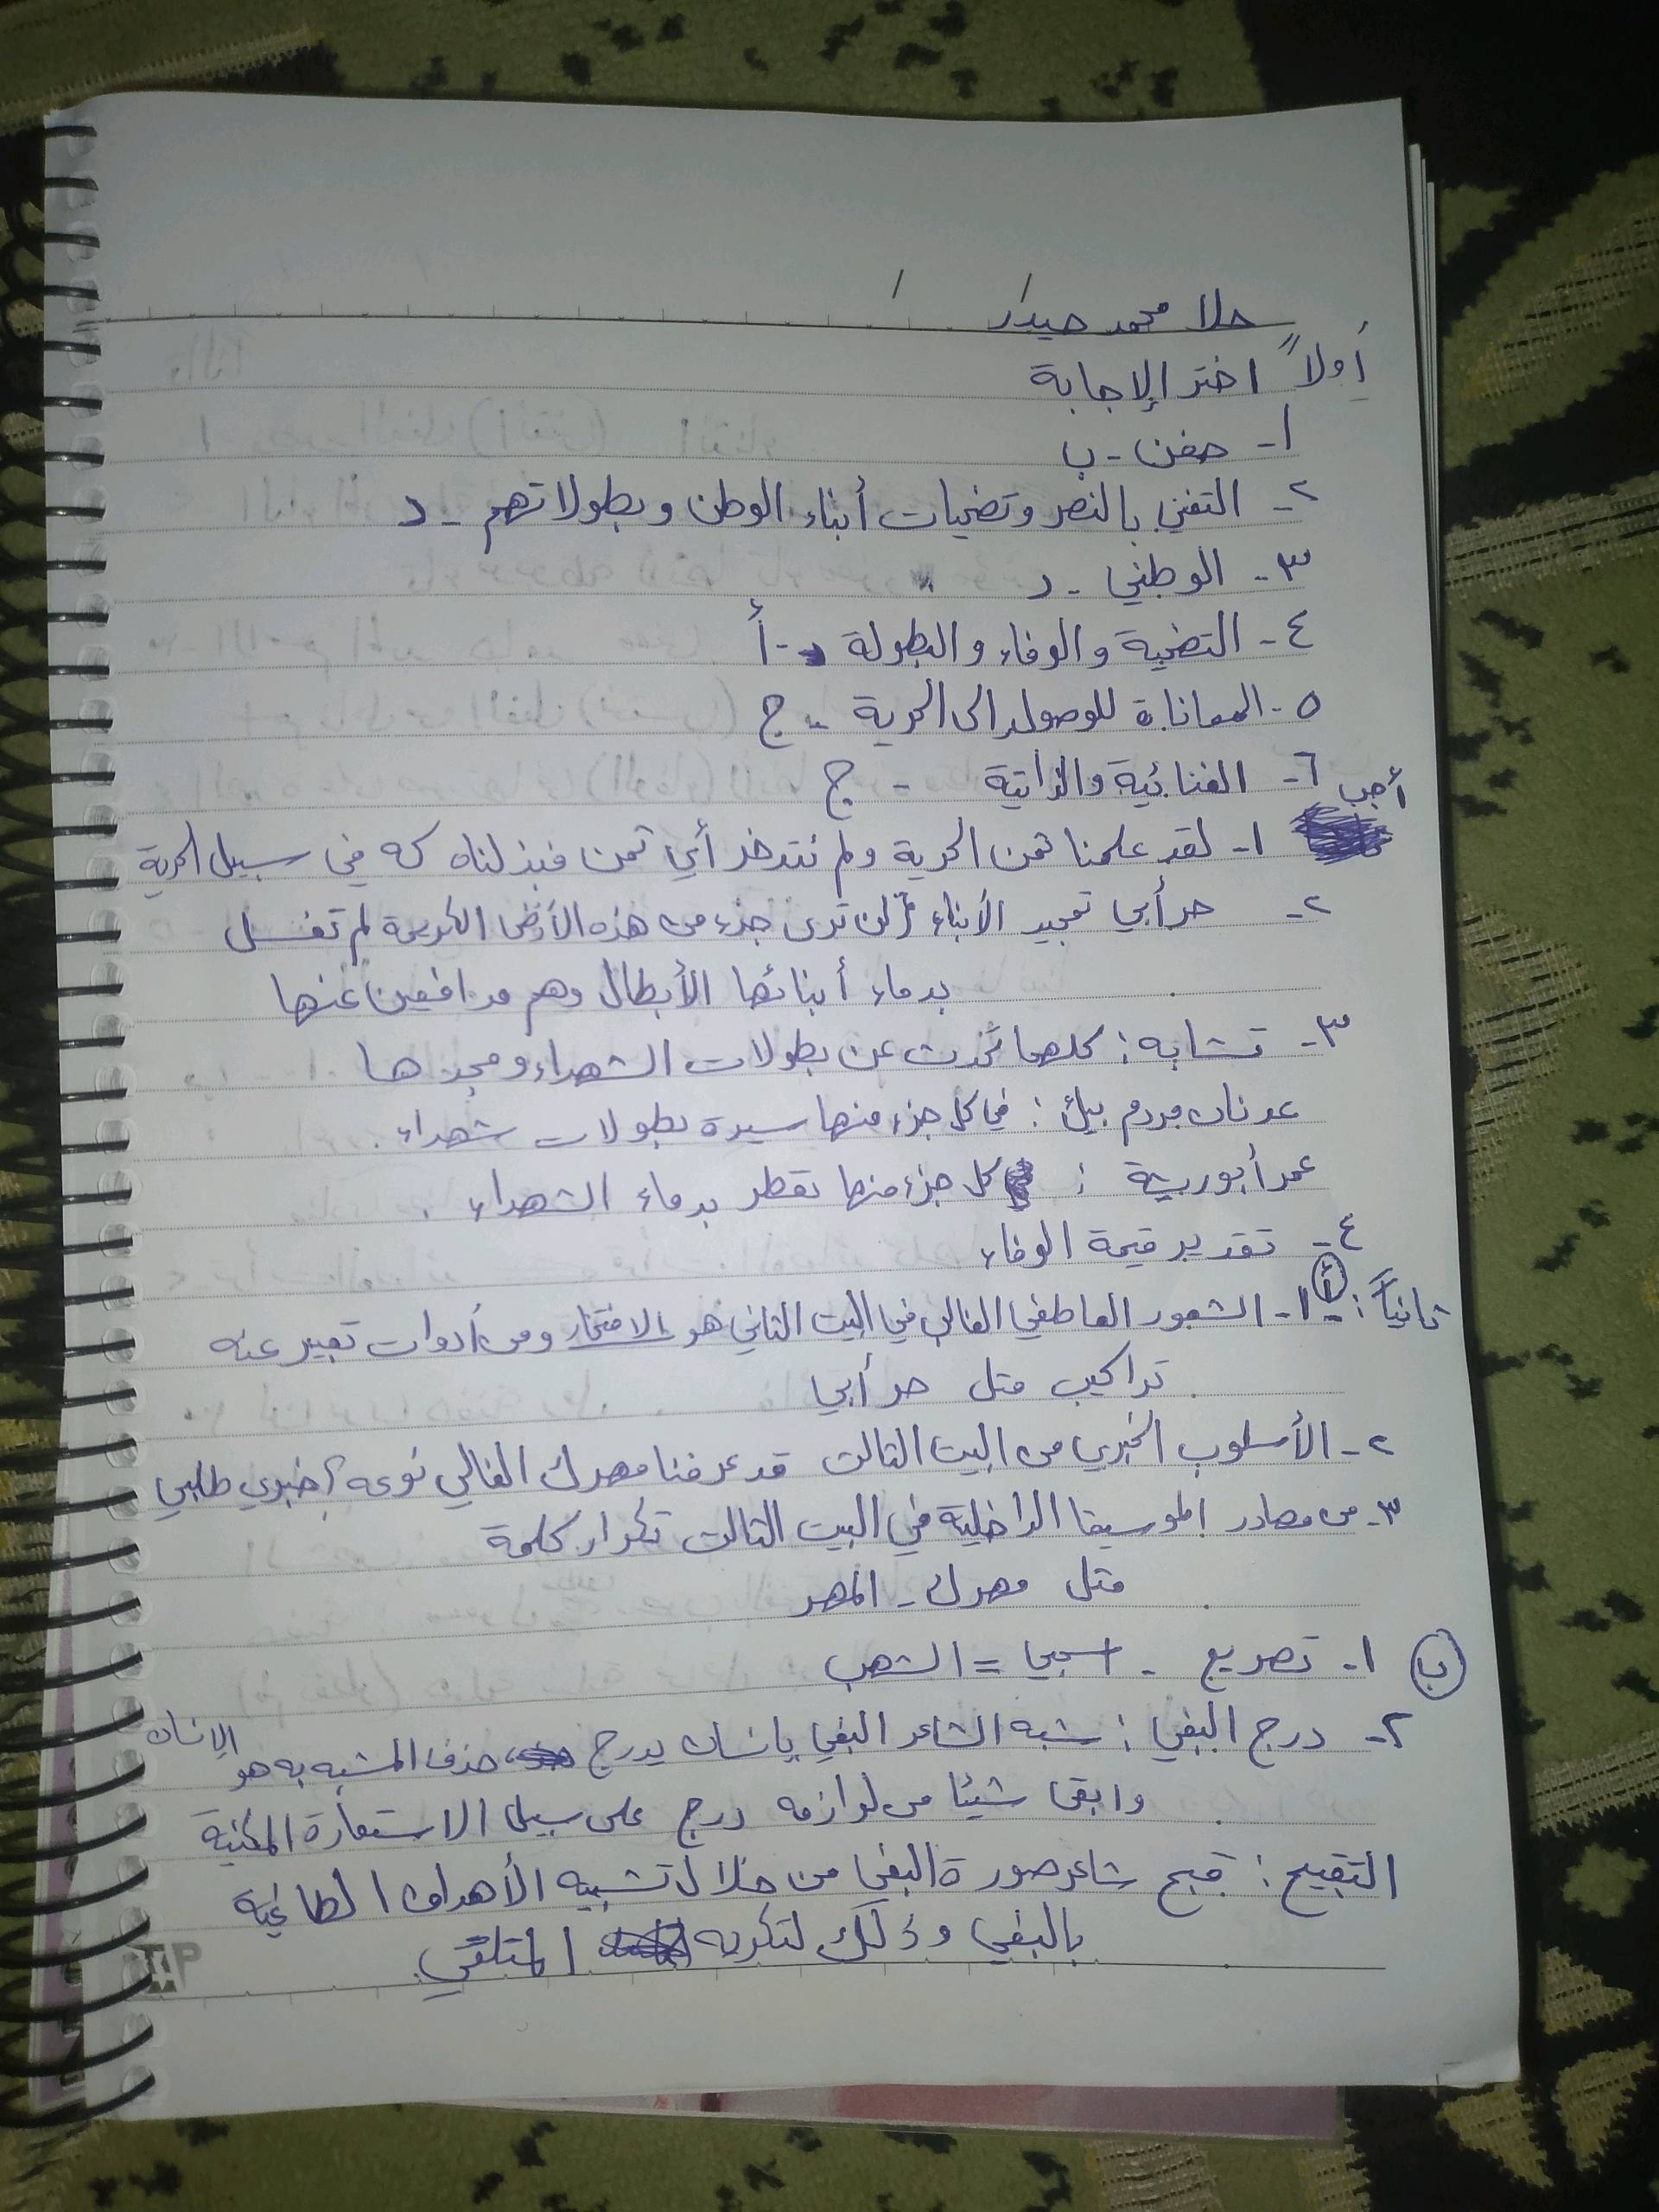 حلا محمد حيدر
أولاً اختر الإجابة
١- حفن - ب
٢- التغني بالنصر وتضحيات أبناء الوطن وبطولاتهم - د
٣- الوطني - د
٤- التضحية والوفاء والبطولة - أ
٥- المعاناة للوصول إلى الحرية - ج
٦- الغنائية والذاتية - ج
أجب
١- لقد علمنا ثمن الحرية ولم ندخر أي ثمن فبذلناه في سبيل الحرية
٢- حر أبي تمجيد الأبناء لن ترى جزء من هذه الأرض الكريمة لم تغسل
بدماء أبنائها الأبطال وهم مدافعين عنها
٣- تشابه: كلاهما تحدث عن بطولات الشهداء ومجدها
عدنان مردم بيك: في كل جزء منها سيرة بطولات شهداء.
عمر أبو ريشة: كل جزء منها تقطر بدماء الشهداء.
٤- تقدير قيمة الوفاء
ثانياً: أ ١- الشعور العاطفي الغالب في البيت الثاني هو الافتخار ومن أدوات تعبير عنه
تراكيب مثل حر أبي
٢- الأسلوب الخبري من البيت الثالث قد عرفنا مهرك الغالي نوعه خبري طلبي
٣- من مصادر الموسيقا الداخلية في البيت الثالث تكرار كلمة
مثل مهرك - المهر
ب ١- تصريع - اسحبي = الشهب
٢- درج البغي: شبه الشاعر البغي بإنسان يدرج حذف المشبه به هو الإنسان
وابقى شيئا من لوازمه درج على سبيل الاستعارة المكنية
التقبيح: قبح شاعر صورة البغي من خلال تشبيه الأهداف الطاغية
بالبغي وذلك لتكريه المتلقي